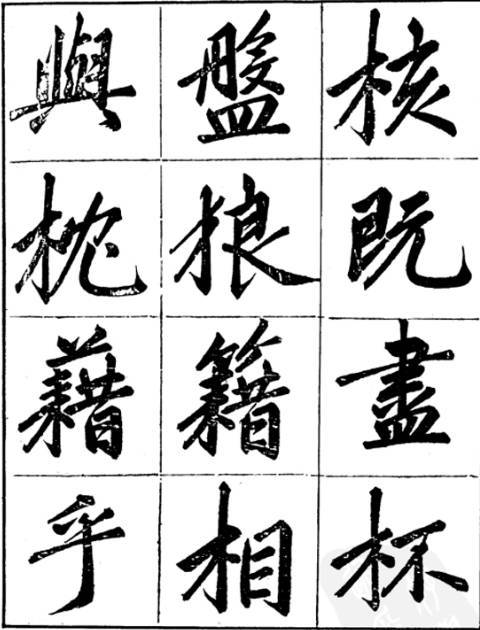 核既盡杯
盤狼籍相
與枕藉乎